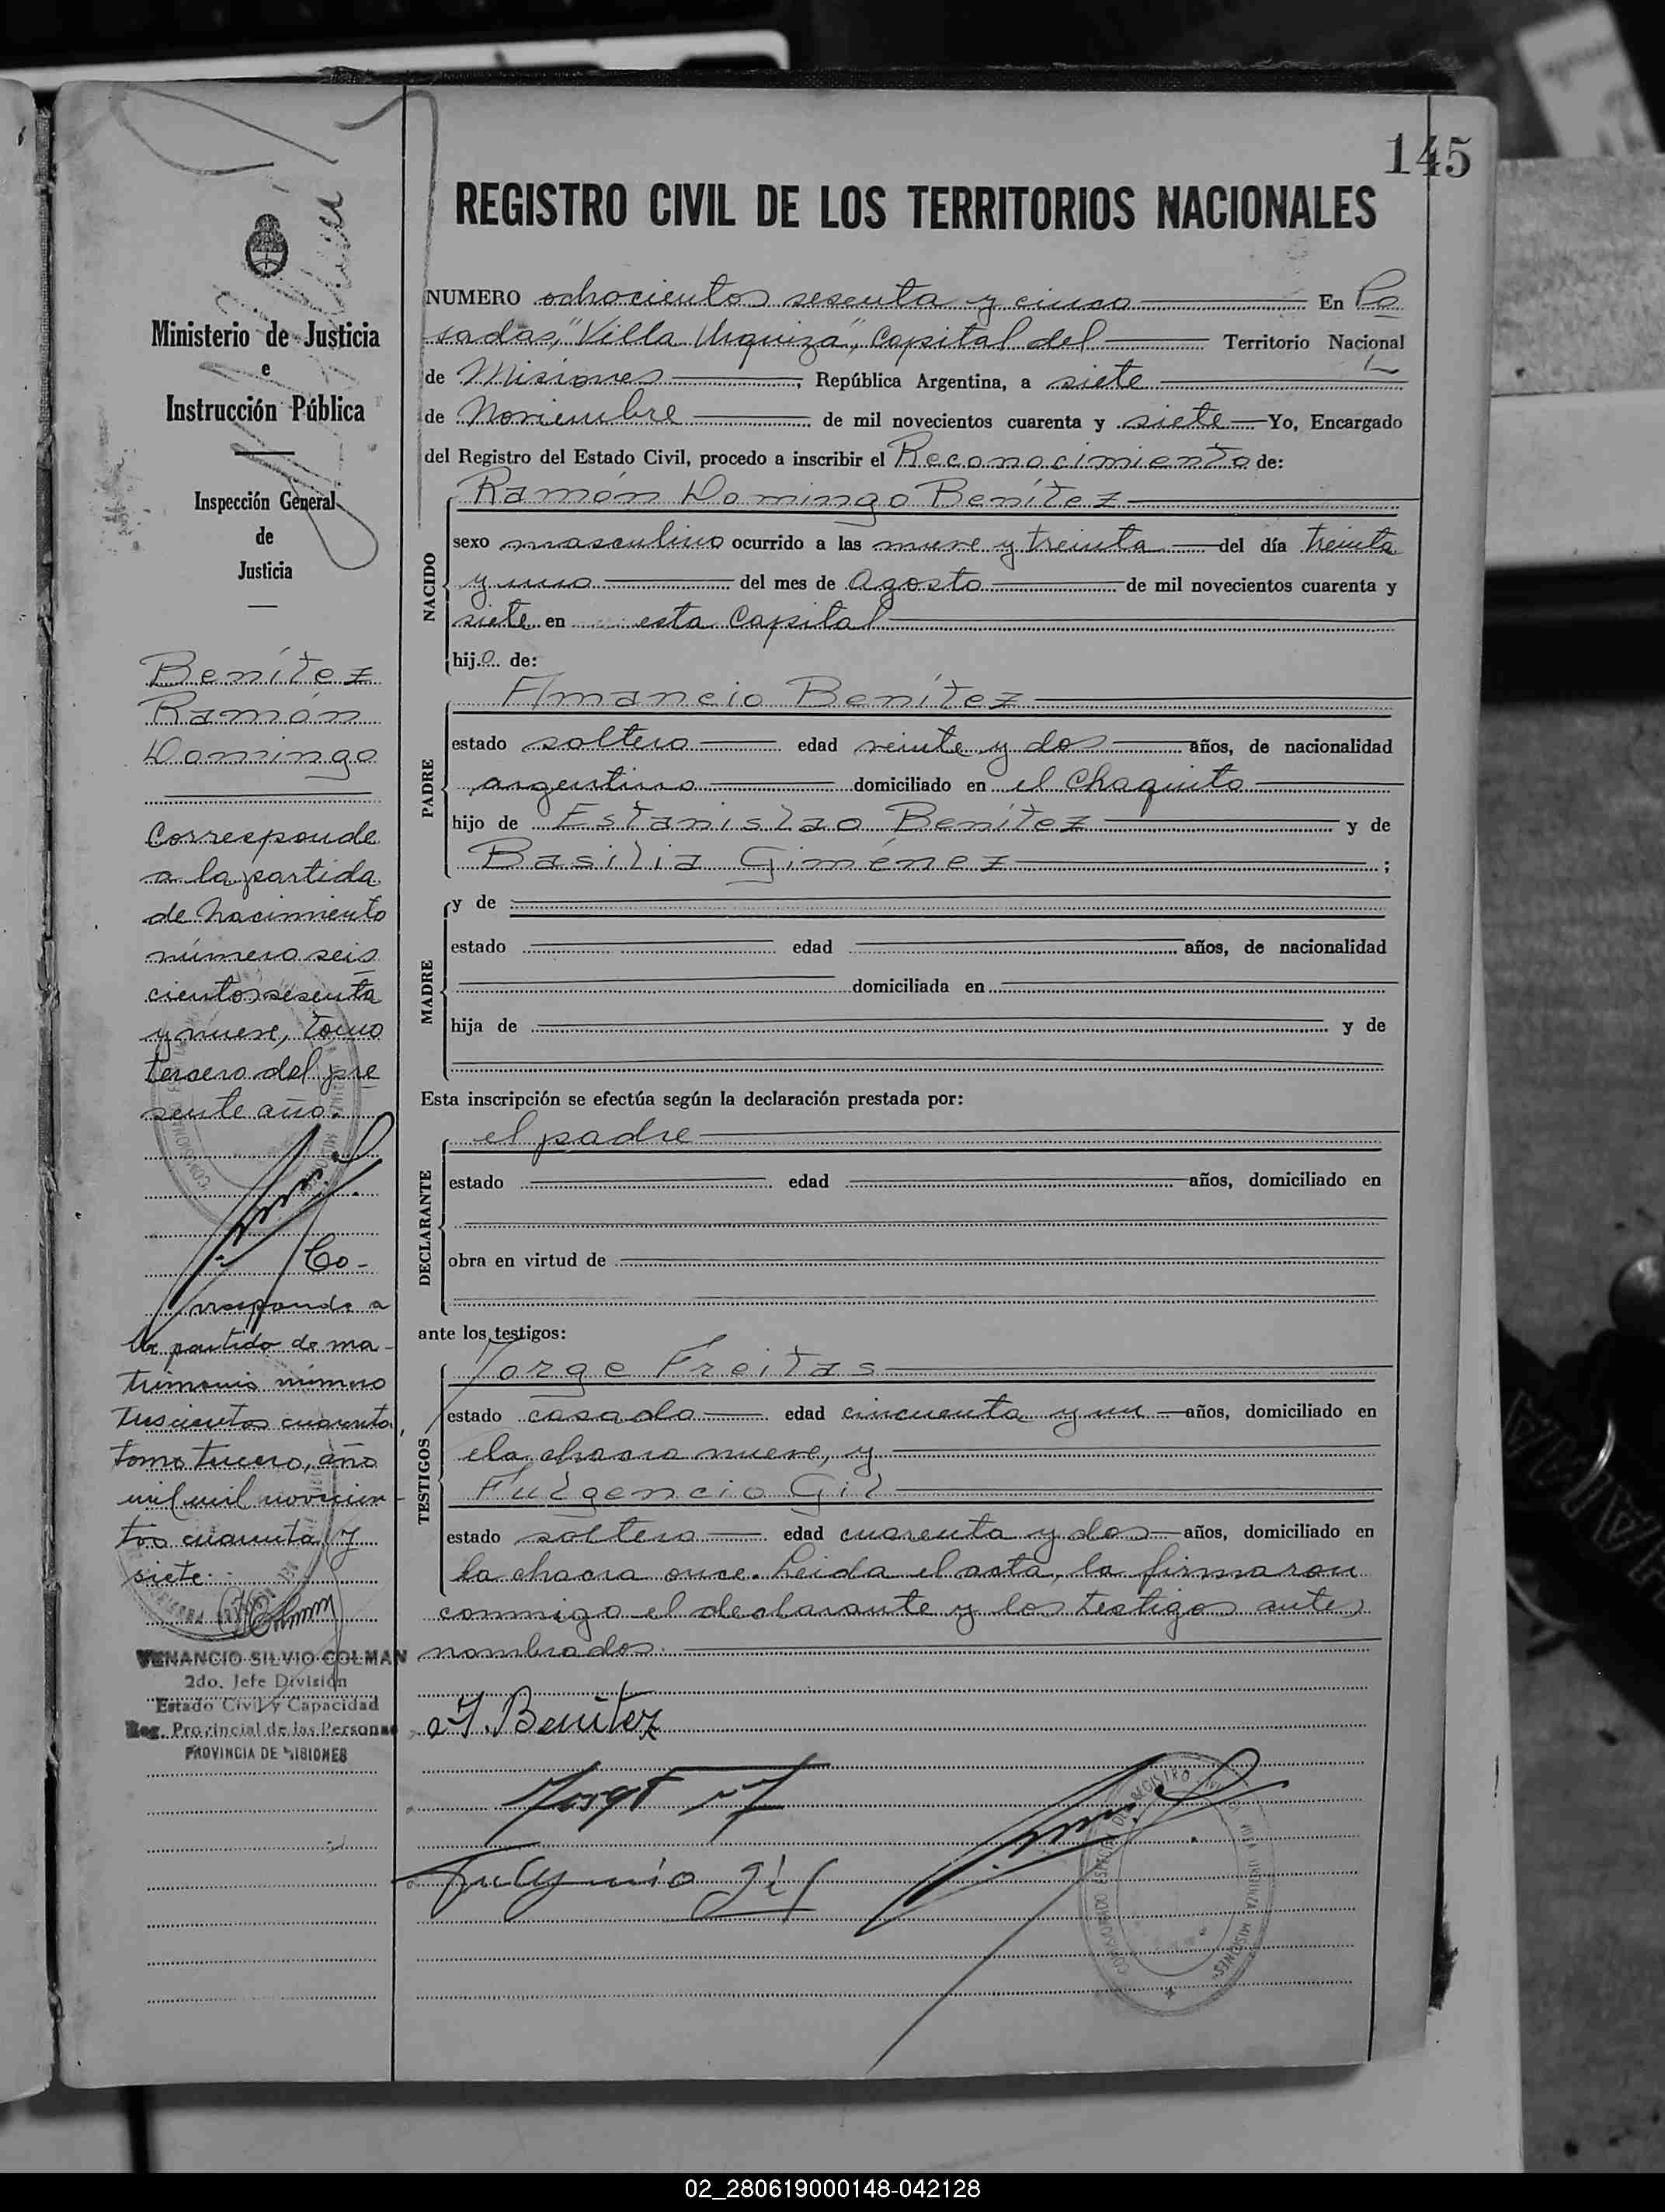 145
REGISTRO CIVIL DE LOS TERRITORIOS NACIONALES
Ministerio de Justicia
e
Instrucción Pública
Inspección General
de
Justicia
Benítez
Ramón
Domingo
Corresponde
a la partida
de Nacimiento
número seis
cientos sesenta
y nueve, tomo
tercero del pre
sente año.
Co-
rresponde a
la partida de ma-
trimonio número
trescientos cuarenta,
tomo tercero, año
mil mil novecien-
tos cuarenta y
siete.
VENANCIO SILVIO COLMAN
2do. Jefe División
Estado Civil y Capacidad
Reg. Provincial de las Personas
PROVINCIA DE MISIONES
NUMERO ochocientos sesenta y cinco En Po
sadas, "Villa Urquiza", Capital del Territorio Nacional
de Misiones, República Argentina, a siete
de Noviembre de mil novecientos cuarenta y siete Yo, Encargado
del Registro del Estado Civil, procedo a inscribir el Reconocimiento de:
NACIDO
Ramón Domingo Benítez
sexo masculino ocurrido a las nueve y treinta del día treinta
y uno del mes de Agosto de mil novecientos cuarenta y
siete en esta Capital
hijo de:
PADRE
Amancio Benítez
estado soltero edad veinte y dos años, de nacionalidad
argentino domiciliado en el Chaquito
hijo de Estanislao Benítez y de
Basilia Giménez;
MADRE
y de
estado edad años, de nacionalidad
domiciliada en
hija de y de
Esta inscripción se efectúa según la declaración prestada por:
DECLARANTE
el padre
estado edad años, domiciliado en
obra en virtud de
ante los testigos:
TESTIGOS
Jorge Freitas
estado casado edad cincuenta y un años, domiciliado en
la chacra nueve, y
Fulgencio Gil
estado soltero edad cuarenta y dos años, domiciliado en
la chacra once. Leida el acta, la firmaron
conmigo el declarante y los testigos antes
nombrados.
Benitez
Jorge
Fulgencio Gil
02_280619000148-042128